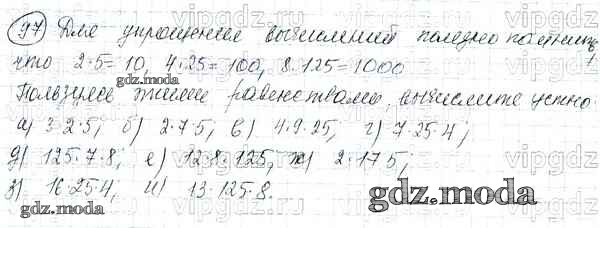 97 Для упрощения вычислений полезно помнить,
что 2·5=10, 4·25=100, 8·125=1000
Пользуясь этими равенствами, вычислите устно:
а) 3·2·5; б) 2·7·5; в) 4·9·25; г) 7·25·4;
д) 125·7·8; е) 12·8·125; ж) 2·17·5;
з) 16·25·4; и) 13·125·8.
gdz.moda
gdz.moda
gdz.moda